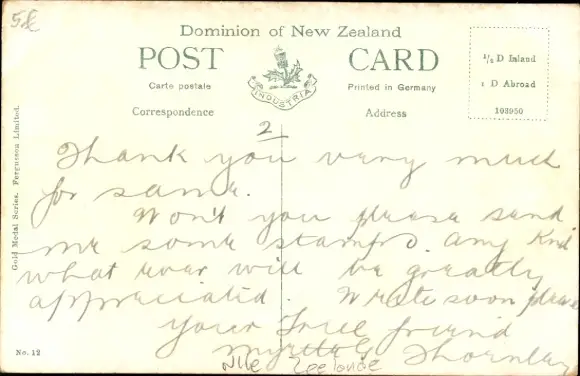 5€
Dominion of New Zealand
POST CARD
INDUSTRIA
Carte postale
Printed in Germany
Correspondence
Address
1/2 D Inland
1 D Abroad
103950
Gold Medal Series. Fergusson Limited.
2
Thank you very much
for same.
Won't you please send
me some stamps. Any Kind
what ever will be greatly
appreciated. Write soon please
your True friend
Thornley
No. 12